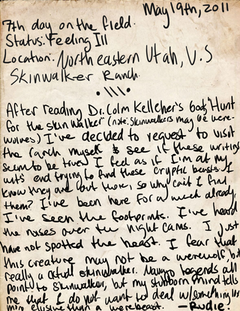 May 19th, 2011
7th day on the field.
Status: Feeling Ill
Location: Northeastern Utah, U.S
Skinwalker Ranch.
After reading Dr. Colm Kelleher's book, Hunt
for the skinwalker (note: Skinwalkers may be were-
wolves) I've decided to request to visit
the ranch myself & see if these writings
seem to be true. I feel as if I'm at my
wits end trying to find these cryptic beasts. I
know they are out there, so why can't I find
them? I've been here for a week already.
I've seen the footprints. I've heard
the noises over the night cams. I just
have not spotted the beast. I fear that
this creature may not be a werewolf, but
really a actual skinwalker. Navajo legends all
point to skinwalker, but my stubborn mind tells
me that I do not want to deal w/ something
more elusive than a werebeast. -Rudie!